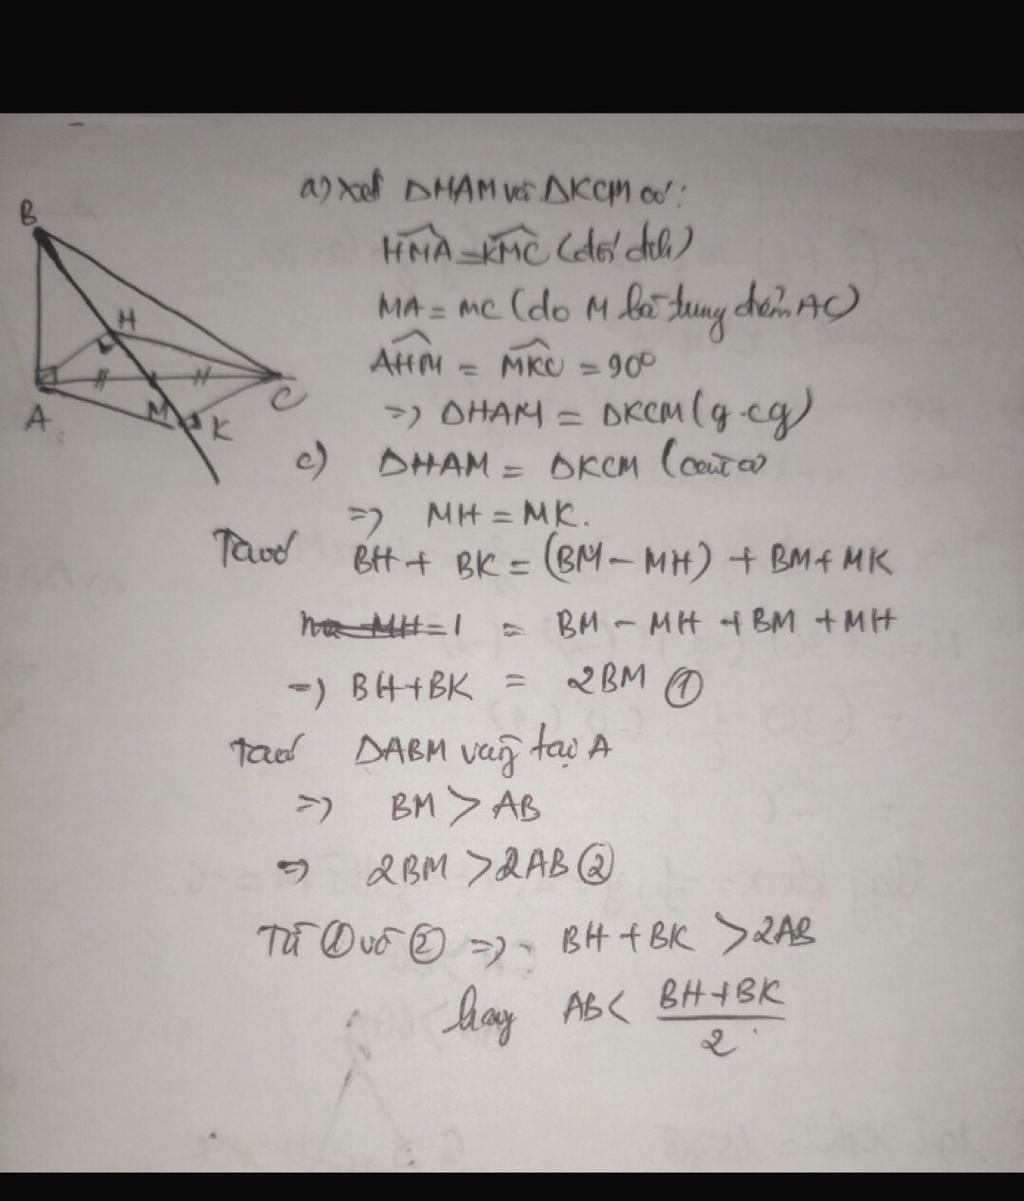 a) Xét ΔHAM và ΔKCM có:
B
HMA = KMC (đối đỉnh)
H
MA = MC (do M là trung điểm AC)
AHM = MKC = 90°
A M K C
=> ΔHAM = ΔKCM (g.cg)
c) ΔHAM = ΔKCM (câu a)
=> MH = MK.
Ta có BH + BK = (BM - MH) + BM + MK
= BM - MH + BM + MH
=> BH + BK = 2BM ①
Ta có ΔABM vuông tại A
=> BM > AB
=> 2BM > 2AB ②
Từ ① và ② => BH + BK > 2AB
hay AB < BH + BK
2